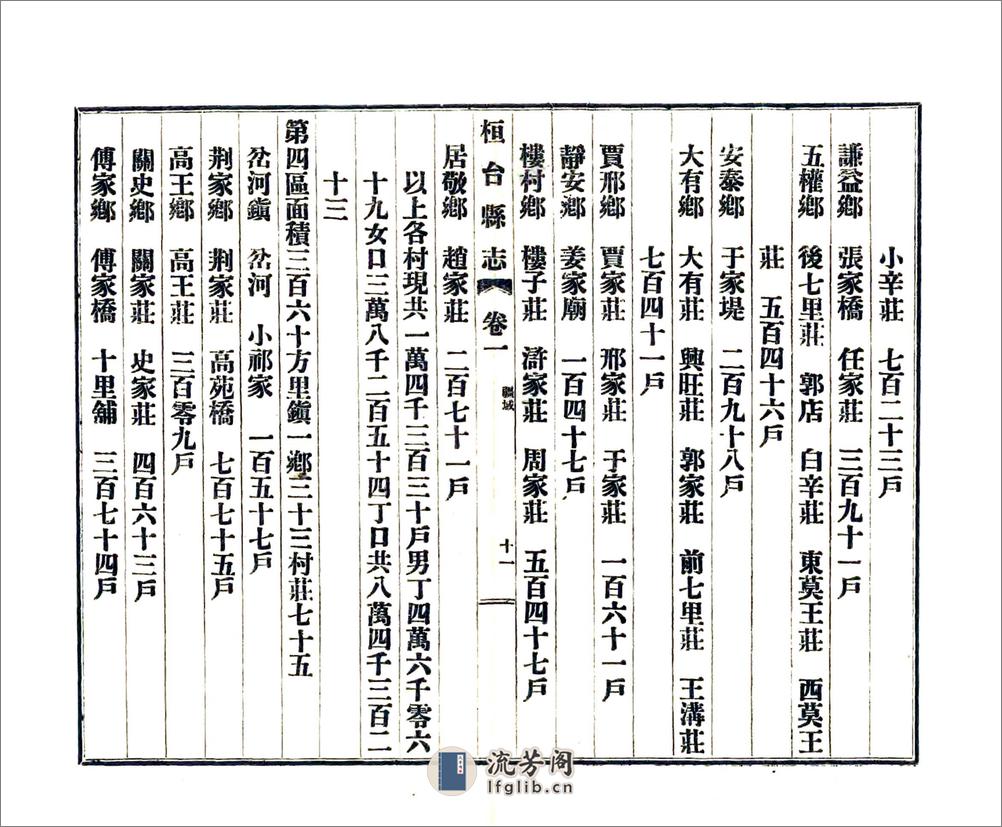 小辛莊　七百二十三戶
謙益鄉　張家橋　任家莊　三百九十一戶
五權鄉　後七里莊　郭店　白辛莊　東莫王莊　西莫王
莊　五百四十六戶
安泰鄉　于家堤　二百九十八戶
大有鄉　大有莊　興旺莊　郭家莊　前七里莊　王溝莊
七百四十一戶
賈邢鄉　賈家莊　邢家莊　于家莊　一百六十一戶
靜安鄉　姜家廟　一百四十七戶
樓村鄉　樓子莊　滸家莊　周家莊　五百四十七戶
桓台縣志　卷一　疆域　十一
居敬鄉　趙家莊　二百七十一戶
以上各村現共一萬四千三百三十戶男丁四萬六千零六
十九女口三萬八千二百五十四丁口共八萬四千三百二
十三
第四區面積三百六十方里鎮一鄉二十三村莊七十五
岔河鎮　岔河　小祁家　一百五十七戶
荆家鄉　荆家莊　高苑橋　七百七十五戶
高王鄉　高王莊　三百零九戶
關史鄉　關家莊　史家莊　四百六十三戶
傅家鄉　傅家橋　十里舖　三百七十四戶
流芳阁
lfglib.cn